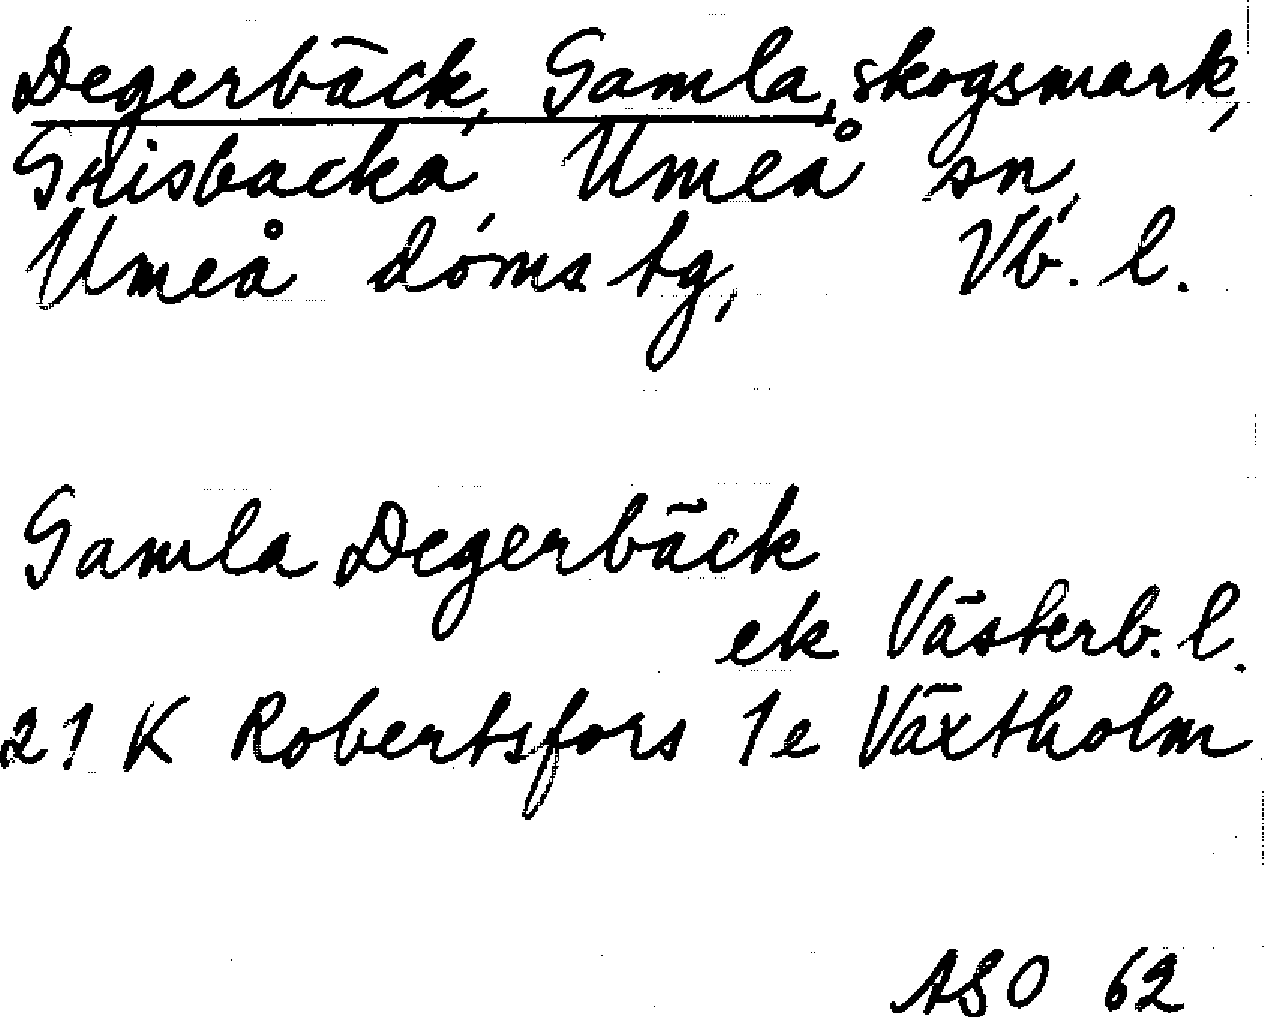 Degerbäck, Gamla, skogsmark,
Grisbacka Umeå sn,
Umeå doms. tg, Vb. l.
Gamla Degerbäck
ek Västerb. l.
21 K Robertsfors 1e Växtholm
ASO 62